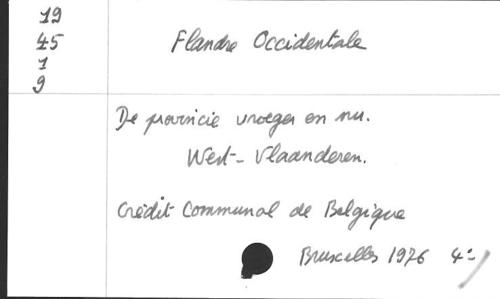 19
45
1
9
Flandre Occidentale
De provincie vroeger en nu.
West-Vlaanderen.
Crédit Communal de Belgique
Bruxelles 1976 4: